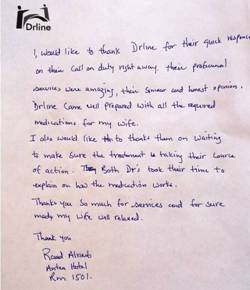 Drline
I, would like to thank Drline for their quick response
on their call on duty right away. their professional
services were amazing, their sincear and honest opinion.
Drline Came well prepared with all the required
medications for my wife.
I also would like to thanks them on waiting
to make sure the treatment is taking their course
of action. Both Dr's took their time to
explain on how the medication works.
Thanks you so much for services and for sure
made my wife well relaxed.
Thank you
Hotel
Rm 1501.